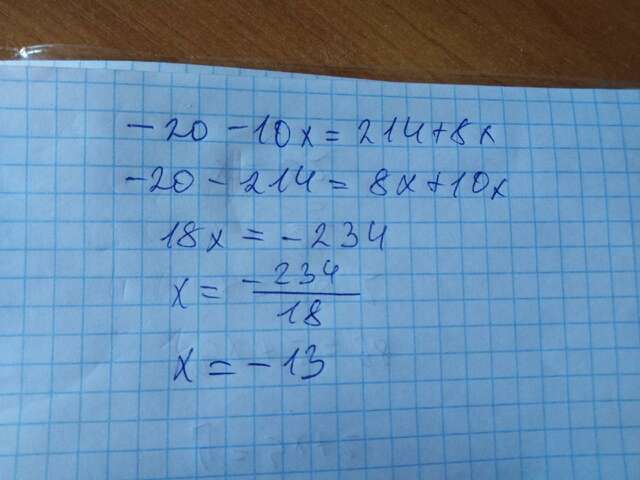 -20-10x=214+8x
-20-214=8x+10x
18x=-234
x=-234/18
x=-13